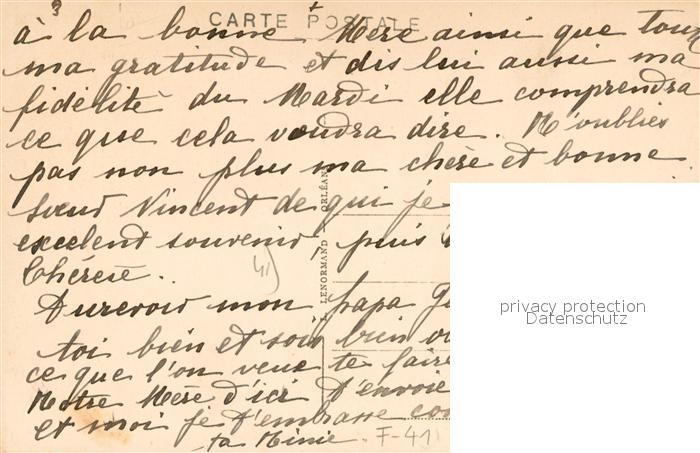 3
CARTE POSTALE
à la bonne Mère ainsi que tout
ma gratitude et dis lui aussi ma
fidélité du Mardi elle comprendra
ce que cela voudra dire. N'oublies
pas non plus ma chère et bonne
Sœur Vincent de qui je
excelent souvenir, puis
Thérèse.
LENORMAND — ORLÉANS
41
Aurevoir mon papa
toi bien et sois bien
ce que l'on veux te faire
Notre Mère d'ici t'envoie
et moi je t'embrasse
ta Minie. F-41
privacy protection
Datenschutz